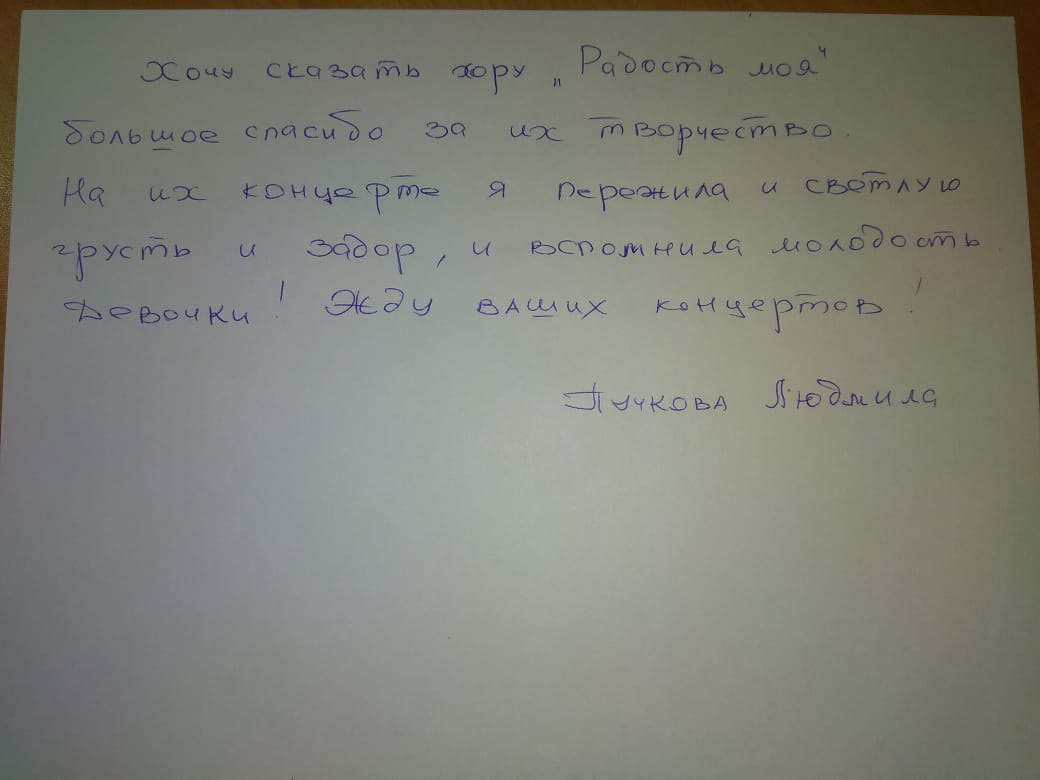 Хочу сказать хору „Радость моя“
большое спасибо за их творчество.
На их концерте я пережила и светлую
грусть и задор, и вспомнила молодость
Девочки! Жду ваших концертов!
Пучкова Людмила